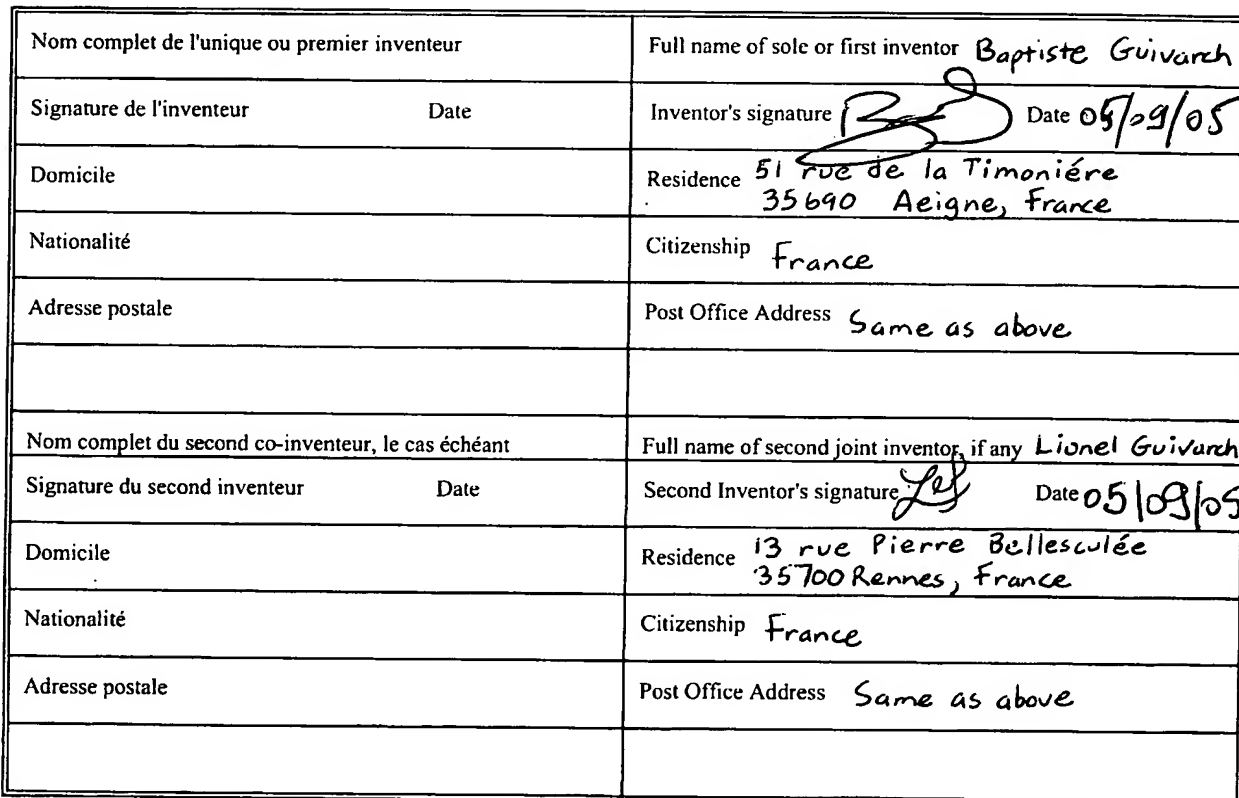 Nom complet de l'unique ou premier inventeur
Full name of sole or first inventor Baptiste Guivarch
Signature de l'inventeur Date
Inventor's signature Date 05/09/05
Domicile
Residence 51 rue de la Timoniére
35690 Aeigne, France
Nationalité
Citizenship France
Adresse postale
Post Office Address Same as above
Nom complet du second co-inventeur, le cas échéant
Full name of second joint inventor, if any Lionel Guivarch
Signature du second inventeur Date
Second Inventor's signature Date 05/09/05
Domicile
Residence 13 rue Pierre
35700 Rennes, France
Nationalité
Citizenship France
Adresse postale
Post Office Address Same as above